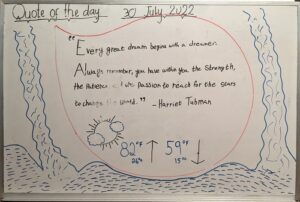 Quote of the day 30 July, 2022
"Every great dream begins with a dreamer.
Always remember, you have within you the strength,
the patience the passion to reach for the stars
to change the world."
- Harriet Tubman
82°F ↑ 59°F ↓